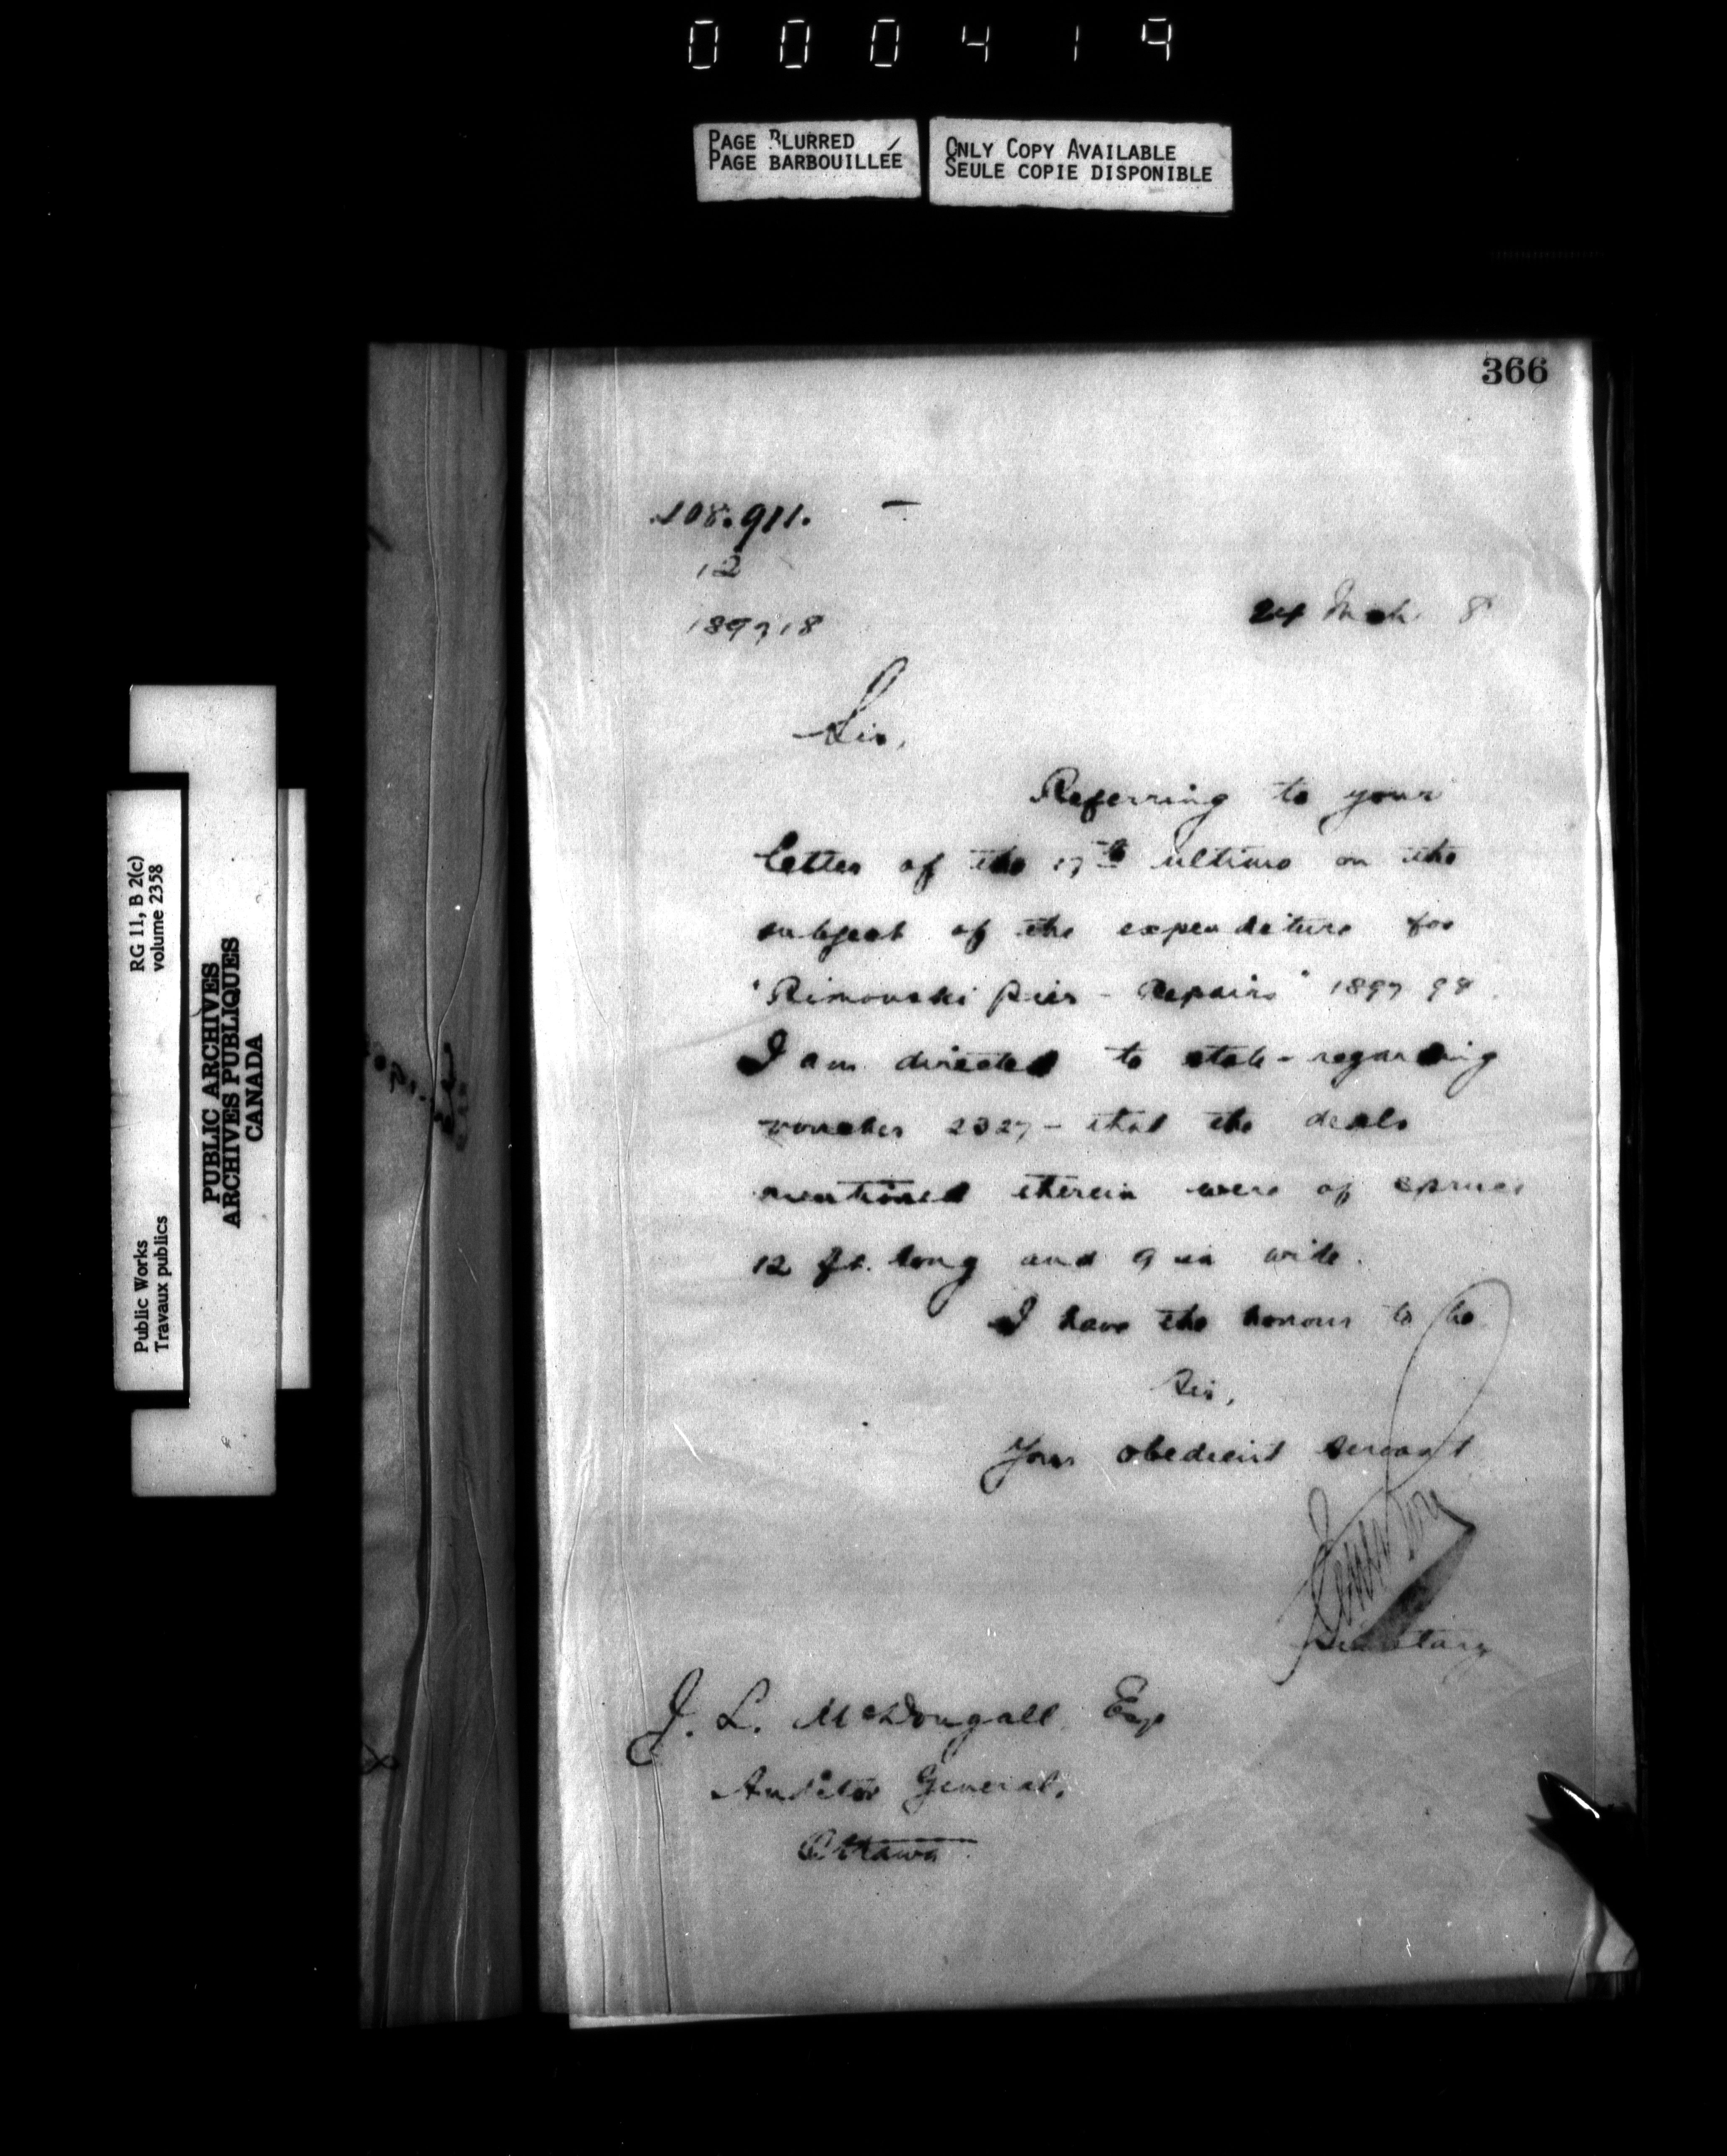 000419
PAGE BLURRED
PAGE BARBOUILLÉE
ONLY COPY AVAILABLE
SEULE COPIE DISPONIBLE
366
108.911.
12
189718
24 Mch 8
Sir,
Referring to your
letter of the 17th ultimo on the
subject of the expenditure for
"Rimouski Pier - Repairs" 1897 98
I am directed to state - regarding
voucher 2327 - that the deals
mentioned therein were of spruce
12 ft. long and 9 in wide.
I have the honour to be
Sir,
Your obedient servant
Secretary
J. L. McDougall Esqr
Auditor General,
Ottawa
RG 11, B 2(c)
volume 2358
Public Works
Travaux publics
PUBLIC ARCHIVES
ARCHIVES PUBLIQUES
CANADA